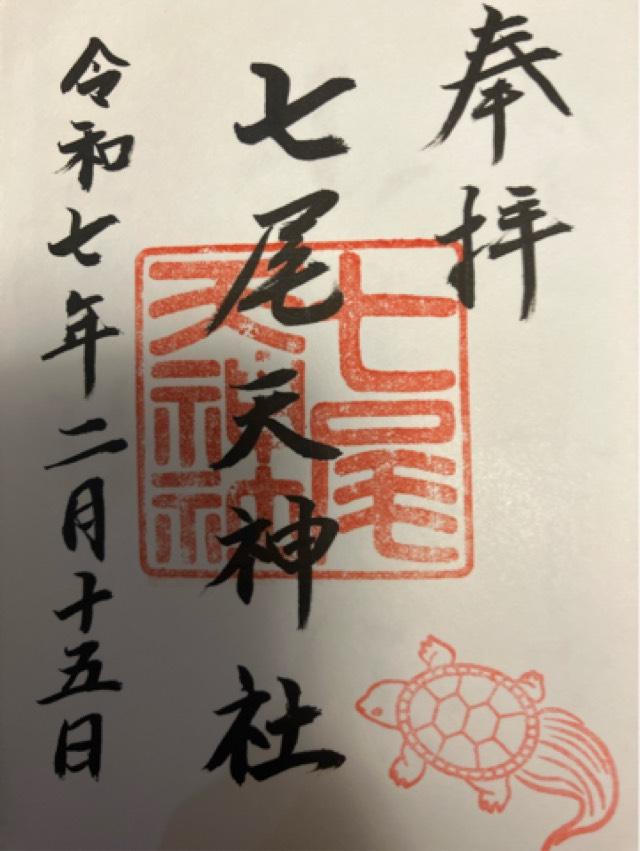 奉拝
七尾天神社
令和七年二月十五日
七尾天神社